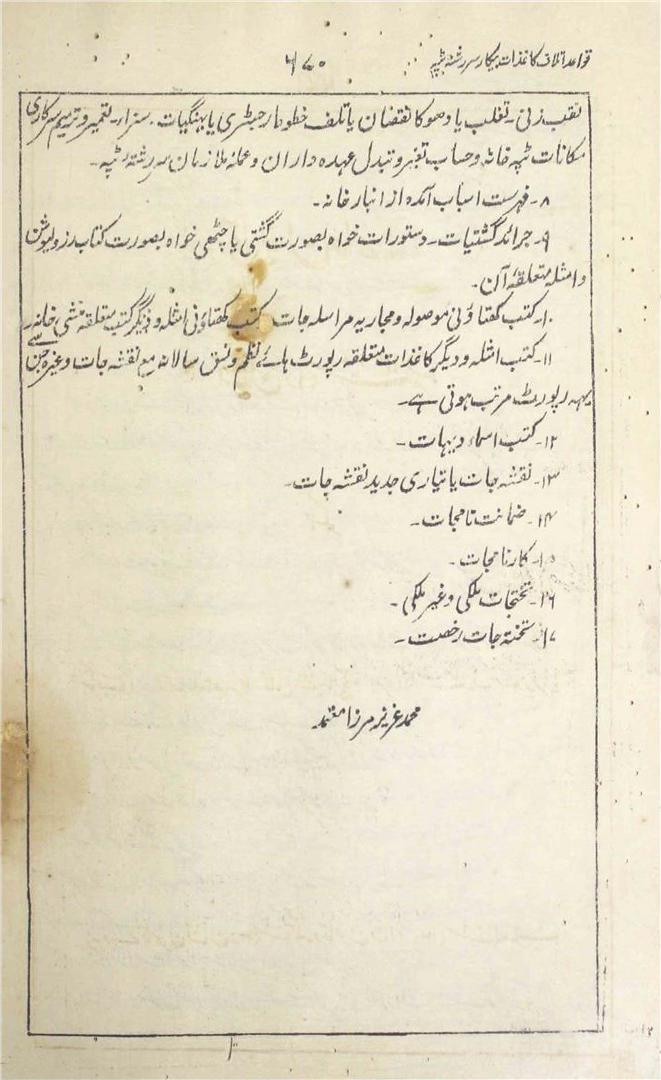 قواعد اتلاف کاغذات بیکار سررشتہ ٹپہ ۶۷۰
نقب زنی۔ تغلب یا دھوکا نقصان یا تلف خطوط رجسٹری یا بہنگیات۔ سزاء۔ تعمیر و ترمیم سرکاری
مکانات ٹپہ خانہ و حساب تغیر و تبدل عہدہ داران و عملہ ملازمان سررشتہ ٹپہ۔
۸۔ فہرست اسباب آمدہ از انبار خانہ۔
۹۔ جرائد گشتیات۔ دستورات خواہ بصورت گشتی یا چٹھی خواہ بصورت کتاب رزولیوشن
و امثلہ متعلقہ آن۔
۱۰۔ کتب کھتاؤنی موصولہ و مجاریہ مراسلہ جات کتب کھتاؤنی امثلہ و دیگر کتب متعلقہ منشی خانہ۔
۱۱۔ کتب امثلہ و دیگر کاغذات متعلقہ رپورٹ ہائے نظم و نسق سالانہ مع نقشہ جات وغیرہ جن سے
یہہ رپورٹ مرتب ہوتی ہے۔
۱۲۔ کتب اسماء دیہات۔
۱۳۔ نقشہ جات یا تیاری جدید نقشہ جات۔
۱۴۔ ضمانت نامجات۔
۱۵۔ کارنامجات۔
۱۶۔ تختجات ملکی و غیر ملکی۔
۱۷۔ تختہ جات رخصت۔
محمد عزیز مرزا معتمد